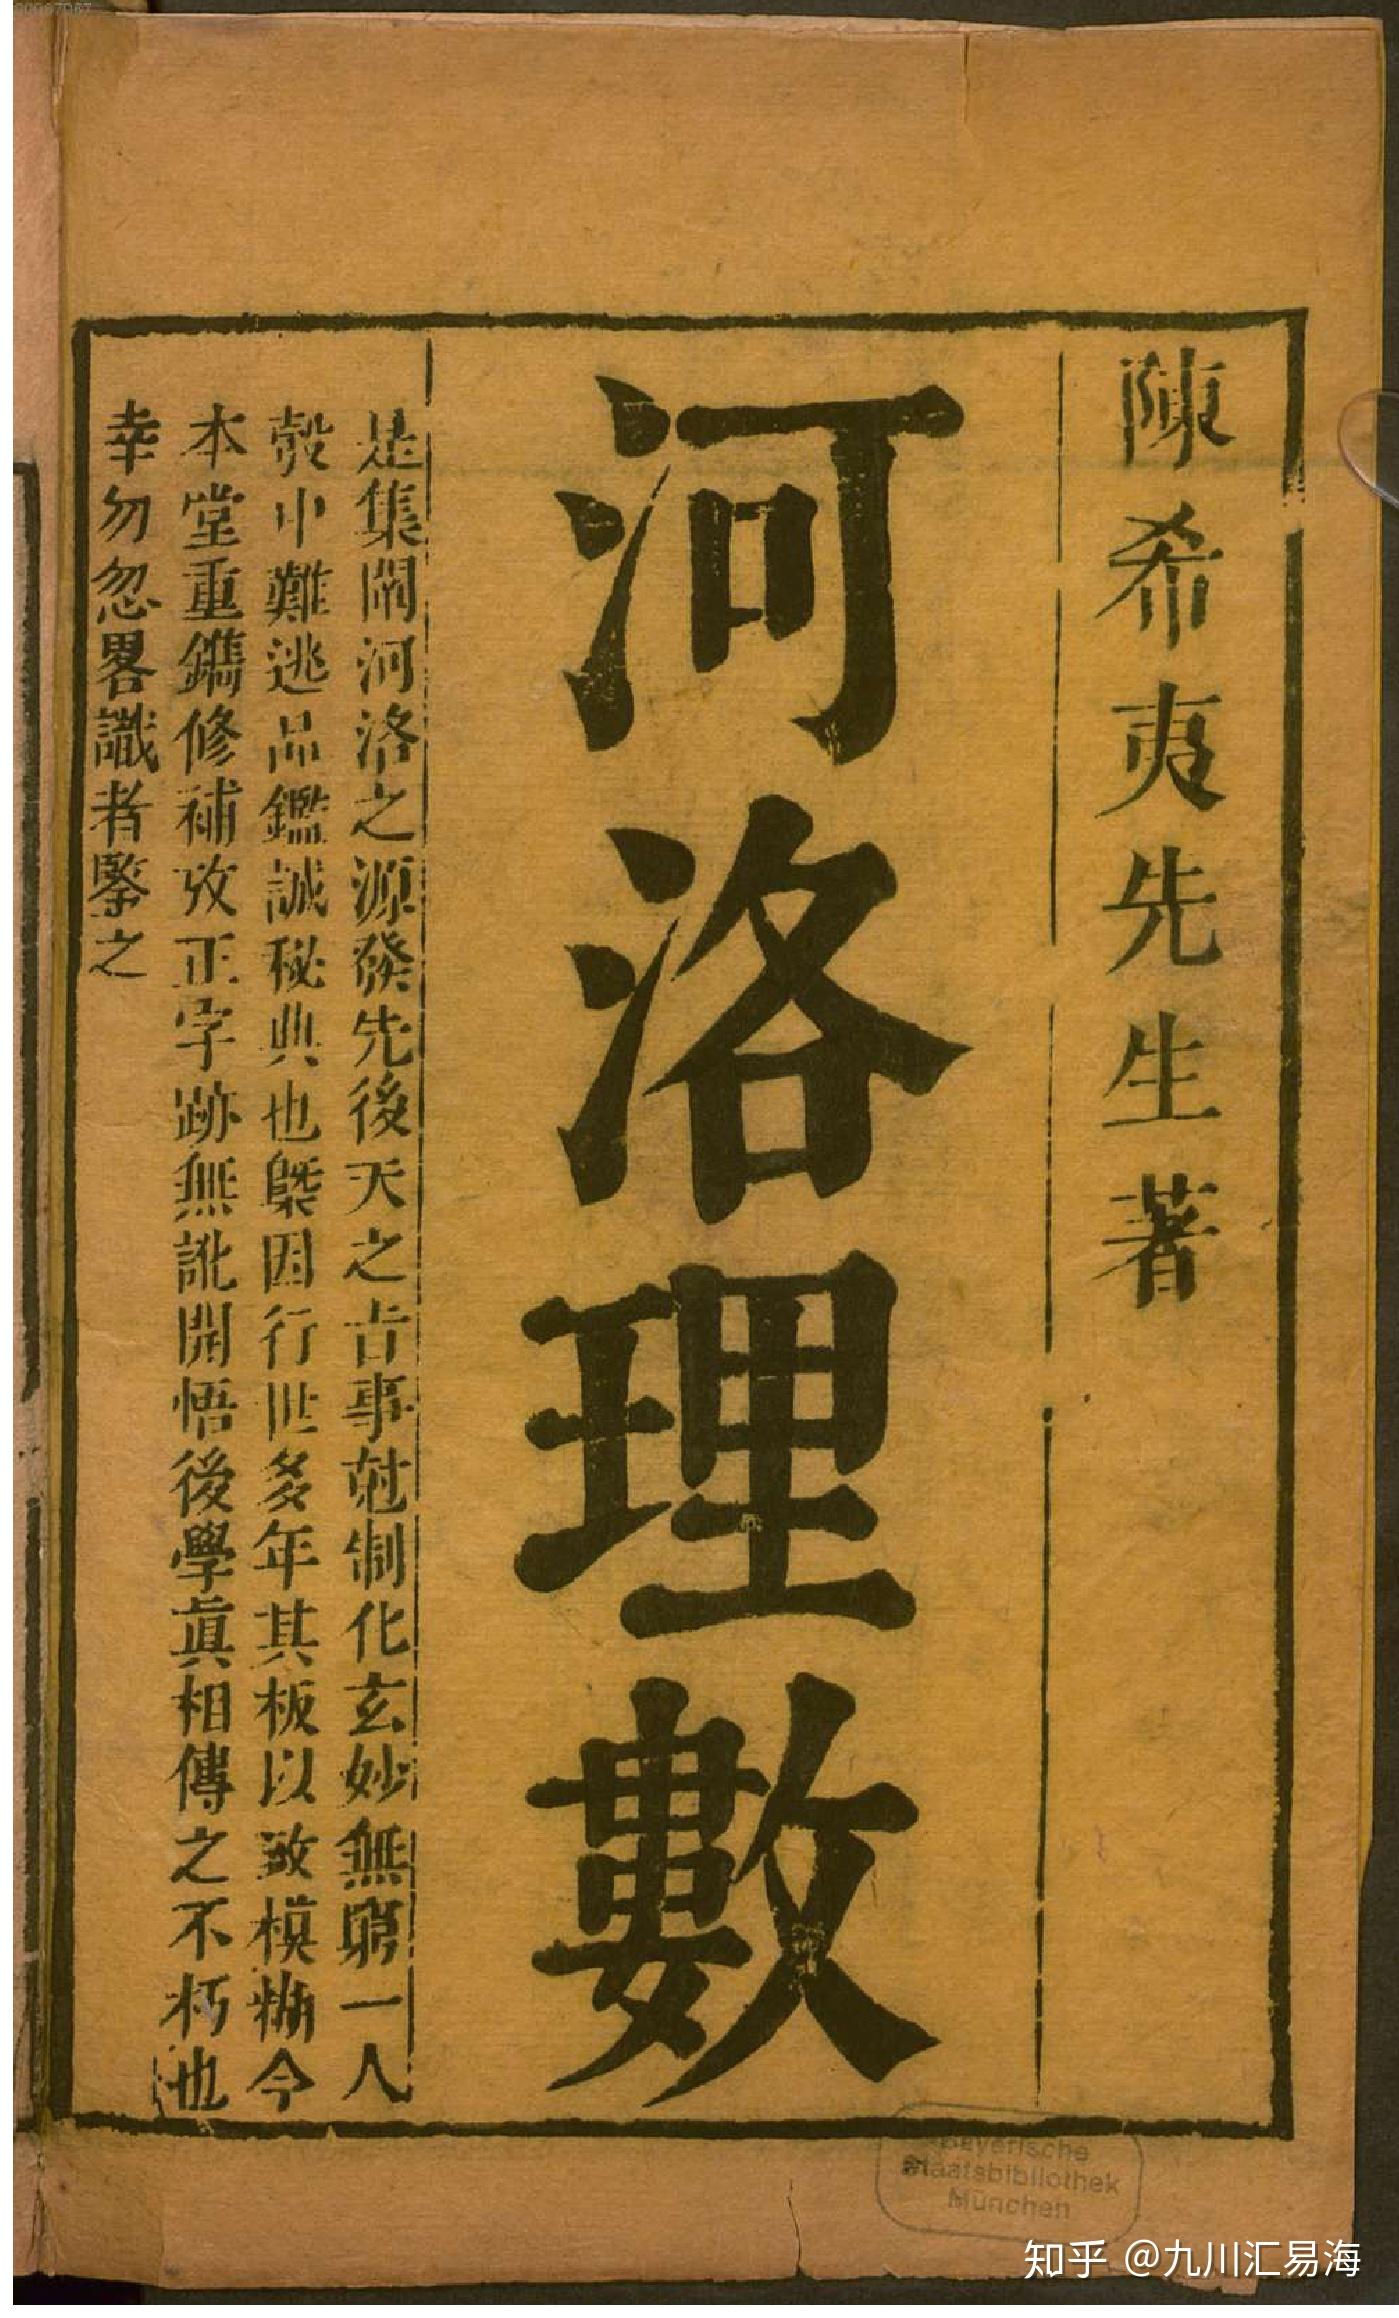 陳希夷先生著
河洛理數
是集闡河洛之源發先後天之古事尅制化玄妙無窮一人
彀中難逃品鑑誠秘典也槩因行世多年其板以致模糊今
本堂重鐫修補攷正字跡無訛開悟後學眞相傳之不朽也
幸勿忽畧識者鑒之
Bayerische
Staatsbibliothek
München
知乎 @九川汇易海